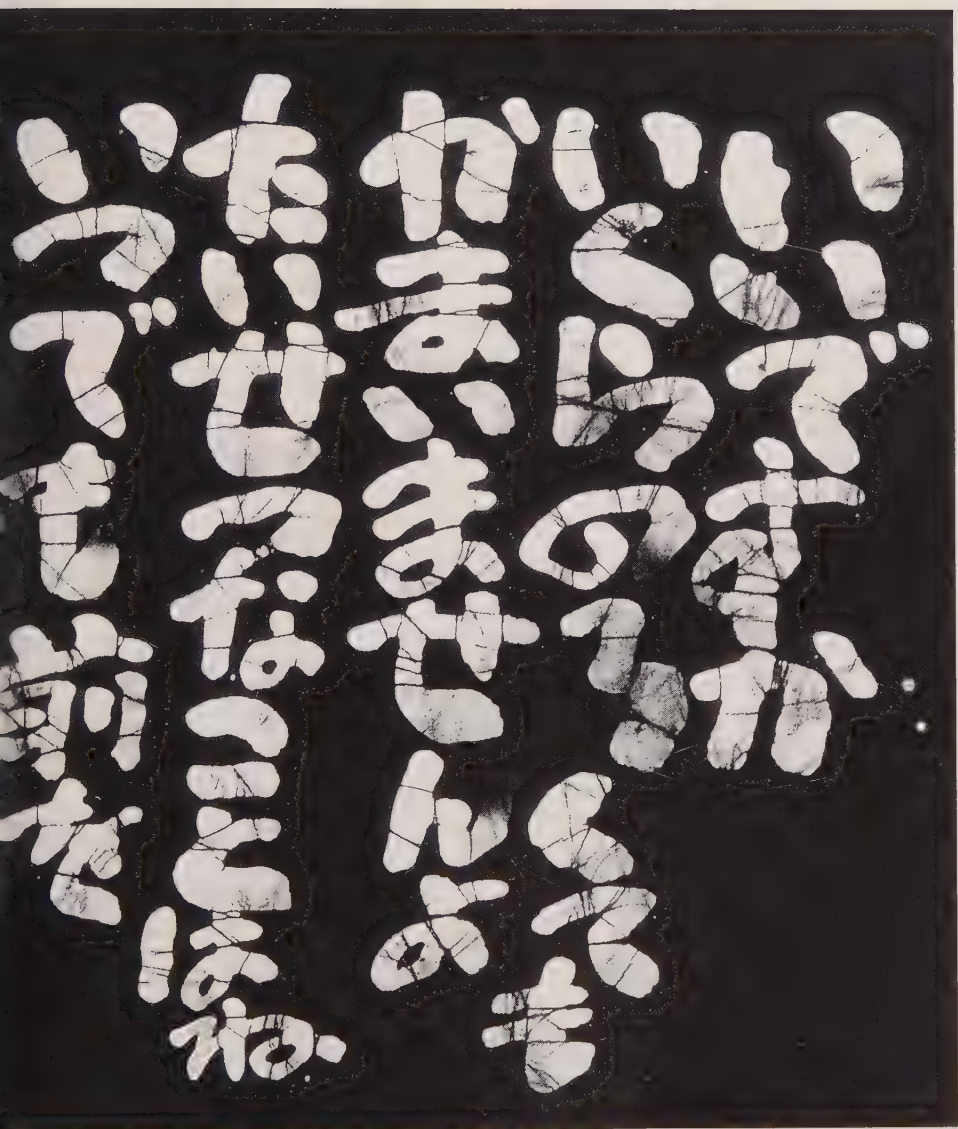 いいですか
いくらのろくても
かまいませんよ
たいせつなことはね
いつでも前を